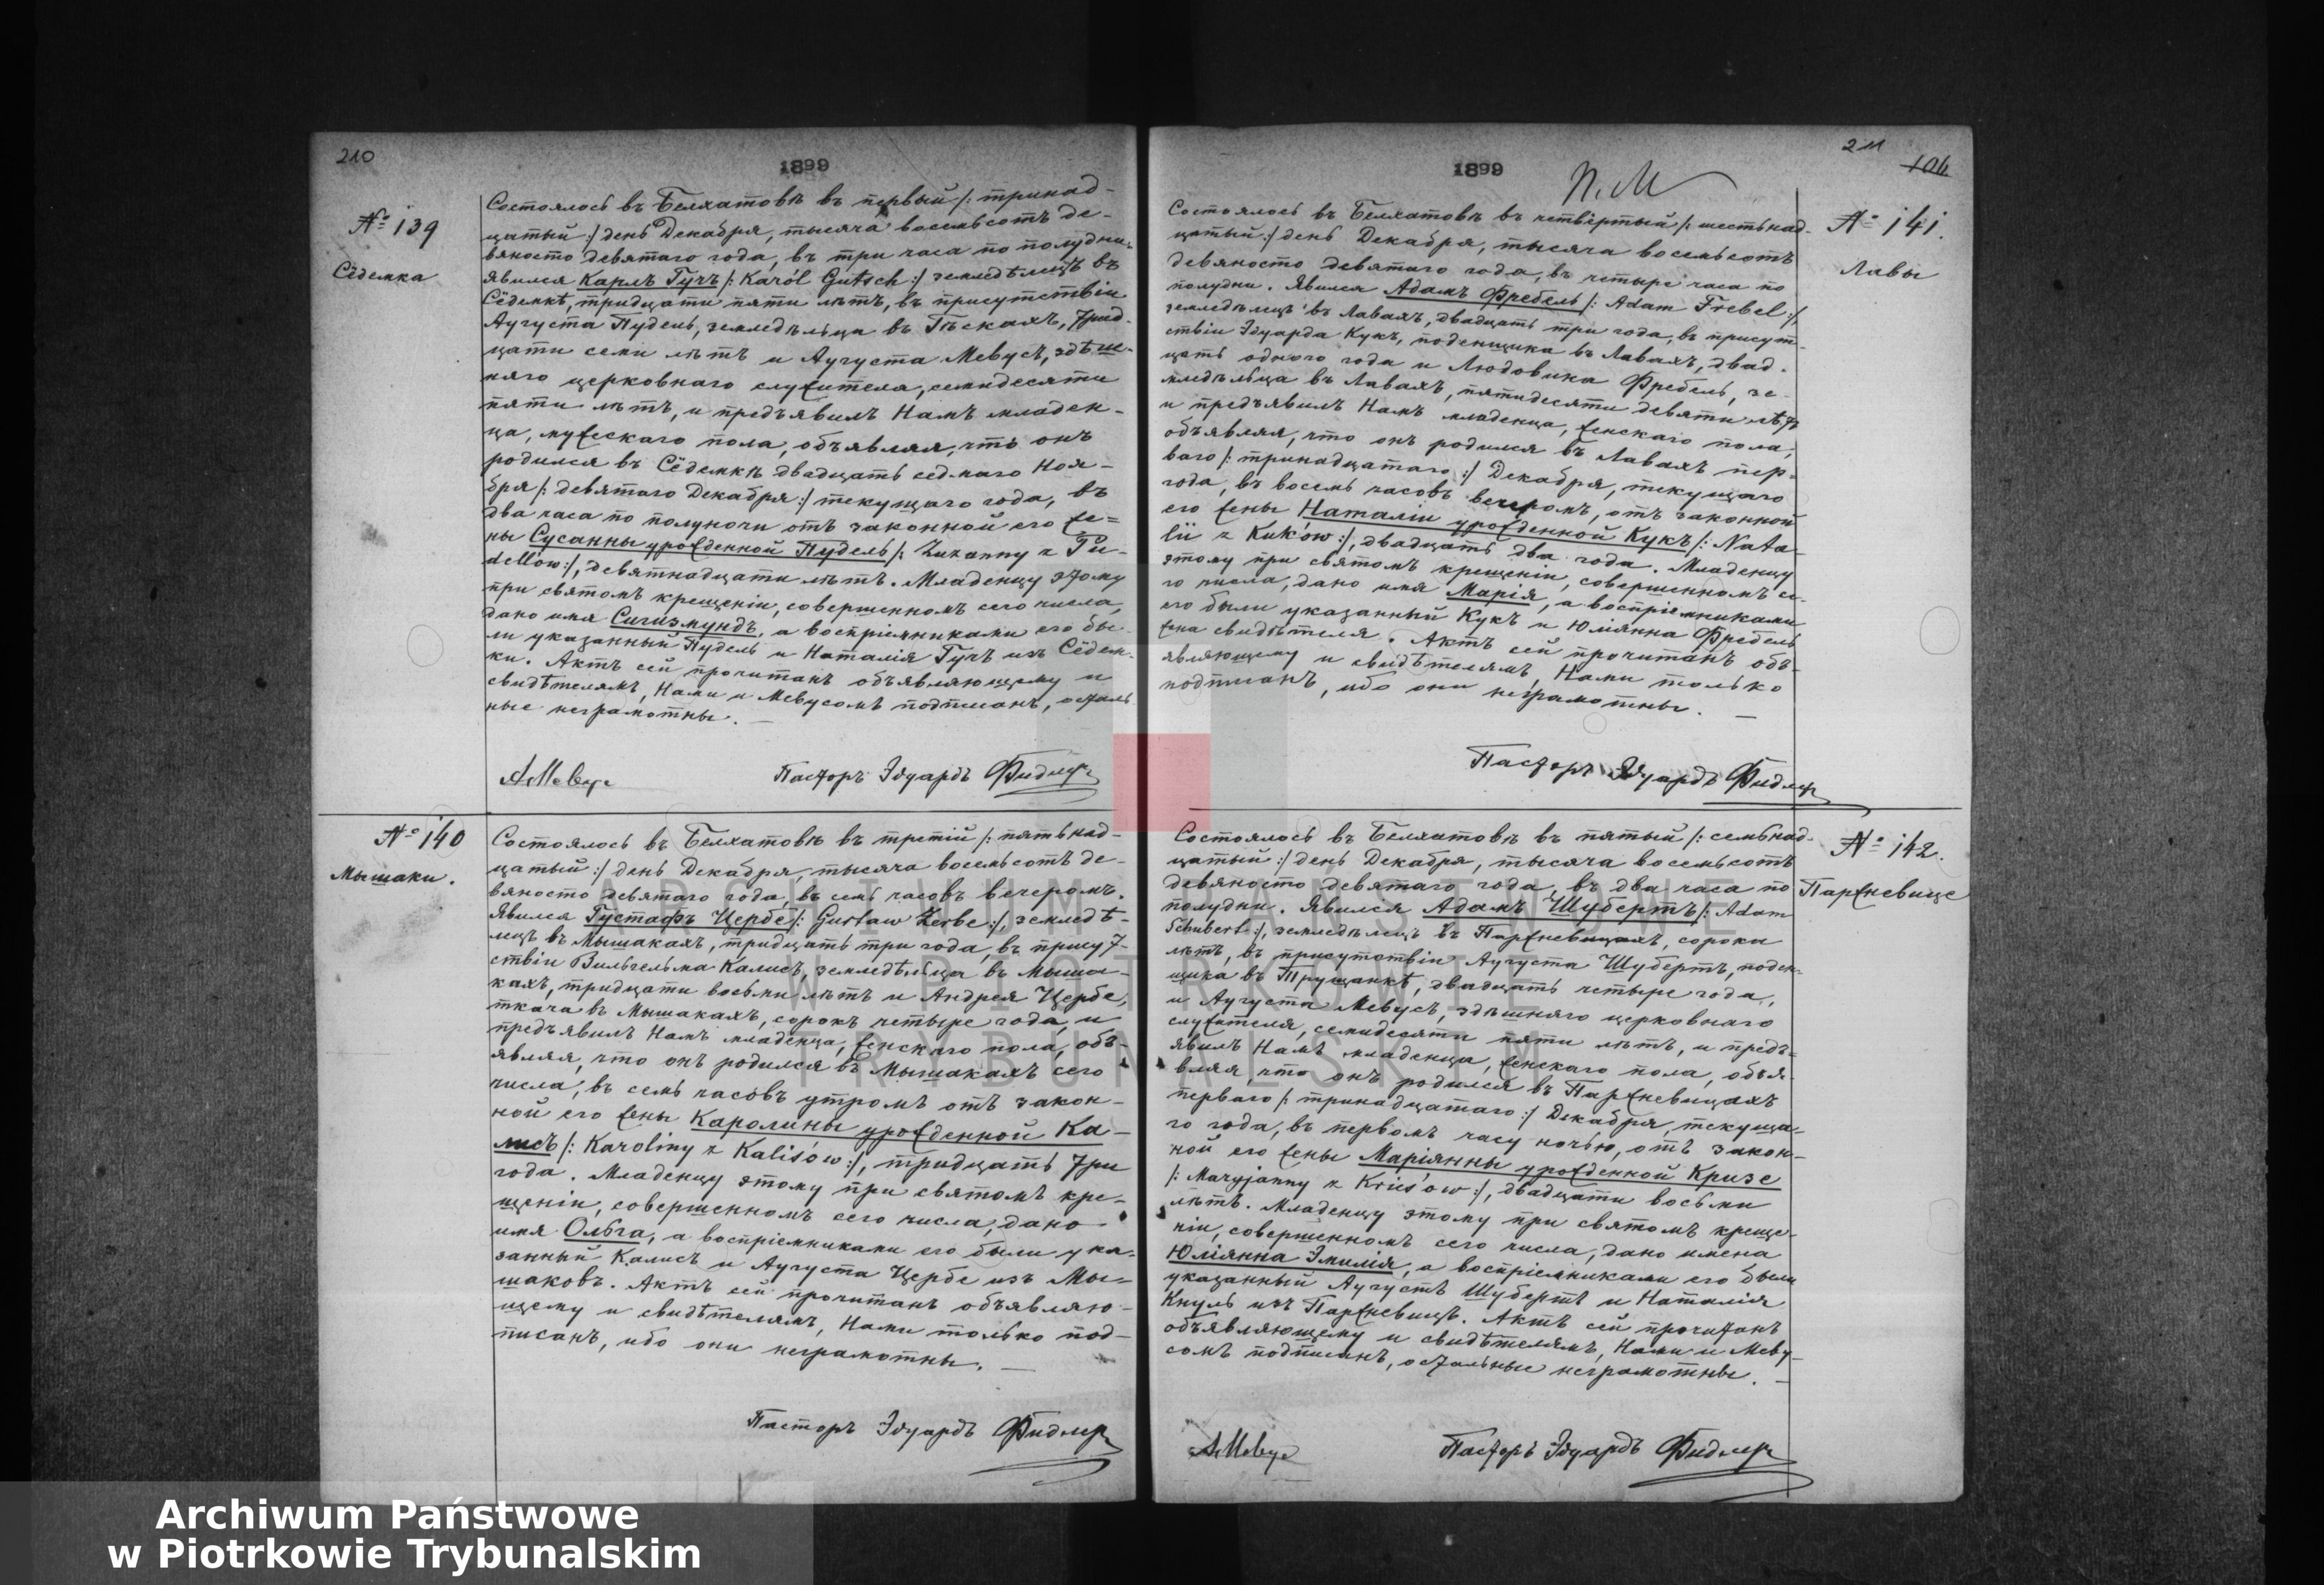 210
1899
№ 139
Сёдемка
Состоялось въ Белхатовѣ въ первый /: тринад-
цатый :/ день Декабря, тысяча восемьсотъ де-
вяносто девятаго года, въ три часа по полудни.
Явился Карлъ Гучъ /: Karól Gutsch :/ земледѣлецъ въ
Сёдемкѣ, тридцати пяти лѣтъ, въ присутствіи
Аугуста Пудель, земледѣльца въ Пѣскахъ, трид-
цати семи лѣтъ и Аугуста Мевусъ, здѣш-
няго церковнаго служителя, семидесяти
пяти лѣтъ, и предъявилъ Намъ младен-
ца, мужескаго пола, объявляя, что онъ
родился въ Сёдемкѣ двадцать седмаго Ноя-
бря /: девятаго Декабря :/ текущаго года, въ
два часа по полуночи отъ законной его же=
ны Сусанны урожденной Пудель /: Zuzanny z Pu-
dellów :/, девятнадцати лѣтъ. Младенцу этому
при святомъ крещеніи, совершенномъ сего числа,
дано имя Сигизмундъ, а воспріемниками его бы-
ли указанный Пудель и Наталія Гучъ изъ Сёдем-
ки. Актъ сей прочитанъ объявляющему и
свидѣтелямъ, Нами и Мевусомъ подписанъ, осталь-
ные неграмотны. —
АМевус
Пасторъ Эдуардъ Фидлер
№ 140
Мышаки.
Состоялось въ Белхатовѣ въ третій /: пятьнад-
цатый :/ день Декабря, тысяча восемьсотъ де-
вяносто девятаго года, въ семь часовъ вечеромъ.
Явился Густафъ Цербе /: Gustaw Zerbe :/, земледѣ-
лецъ въ Мышакахъ, тридцать три года, въ присут-
ствіи Вильгельма Калисъ, земледѣльца въ Мыша-
кахъ, тридцати восьми лѣтъ и Андрея Цербе,
ткача въ Мышакахъ, сорокъ четыре года, и
предъявилъ Намъ младенца, женскаго пола, объ-
являя, что онъ родился въ Мышакахъ сего
числа, въ семь часовъ утромъ отъ закон-
ной его жены Каролины урожденной Ка-
лисъ /: Karoliny z Kalisów :/, тридцать три
года. Младенцу этому при святомъ кре-
щеніи, совершенномъ сего числа, дано
имя Ольга, а воспріемниками его были ука-
занный Калисъ и Аугуста Цербе изъ Мы-
шаковъ. Актъ сей прочитанъ объявляю-
щему и свидѣтелямъ, Нами только под-
писанъ, ибо они неграмотны. —
Пасторъ Эдуардъ Фидлер
211
106
1899
П.М
№ 141.
Лавы
Состоялось въ Белхатовѣ въ четвёртый /: шестьнад-
цатый :/ день Декабря, тысяча восемьсотъ
девяносто девятаго года, въ четыре часа по
полудни. Явился Адамъ Фребель /: Adam Frebel :/,
земледѣлецъ въ Лавахъ, двадцать три года, въ присут-
ствіи Эдуарда Кукъ, поденщика въ Лавахъ, двад-
цать одного года и Людовика Фребель, зе-
мледѣльца въ Лавахъ, пятидесяти девяти лѣтъ
и предъявилъ Намъ младенца, женскаго пола,
объявляя, что онъ родился въ Лавахъ пер-
ваго /: тринадцатаго :/ Декабря, текущаго
года, въ восемь часовъ вечеромъ, отъ законной
его жены Наталіи урожденной Кукъ /: Nata-
lii z Kuków :/, двадцать два года. Младенцу
этому при святомъ крещеніи, совершенномъ се-
го числа, дано имя Марія, а воспріемниками
его были указанный Кукъ и Юліянна Фребель
жена свидѣтеля. Актъ сей прочитанъ объ-
являющему и свидѣтелямъ, Нами только
подписанъ, ибо они неграмотны. —
Пасторъ Эдуардъ Фидлер
№ 142.
Парженевице
Состоялось въ Белхатовѣ въ пятый /: семьнад-
цатый :/ день Декабря, тысяча восемьсотъ
девяносто девятаго года, въ два часа по
полудни. Явился Адамъ Шубертъ /: Adam
Schubert :/, земледѣлецъ въ Парженевицахъ, сорока
лѣтъ, въ присутствіи Аугуста Шубертъ, поден-
щика въ Трущанкѣ, двадцать четыре года,
и Аугуста Мевусъ, здѣшняго церковнаго
служителя, семидесяти пяти лѣтъ, и предъ-
явилъ Намъ младенца, женскаго пола, объя-
вляя, что онъ родился въ Парженевицахъ
перваго /: тринадцатаго :/ Декабря, текуща-
го года, въ первомъ часу ночью, отъ закон-
ной его жены Маріянны урожденной Кризе
/: Maryjanny z Kriesów :/, двадцати восьми
лѣтъ. Младенцу этому при святомъ креще-
ніи, совершенномъ сего числа, дано имена
Юліянна Эмилія, а воспріемниками его были
указанный Аугустъ Шубертъ и Наталія
Кнуль изъ Парженевицъ. Актъ сей прочитанъ
объявляющему и свидѣтелямъ, Нами и Меву-
сомъ подписанъ, остальные неграмотны. —
АМевус
Пасторъ Эдуардъ Фидлер
ARCHIWUM PAŃSTWOWE
W PIOTRKOWIE
TRYBUNALSKIM
Archiwum Państwowe
w Piotrkowie Trybunalskim